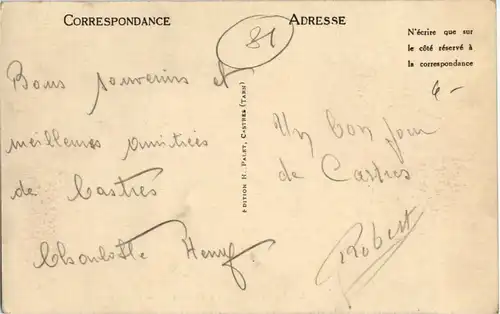 CORRESPONDANCE
ADRESSE
81
N'écrire que sur
le côté réservé à
la correspondance
6-
Bons souvenirs et
meilleures amitiées
de Castres
Charlotte Henry
EDITION H. PALET, CASTRES (TARN)
Un bon jour
de Castres
Robert